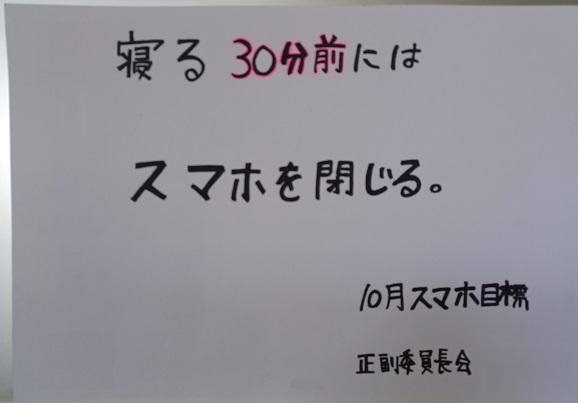 寝る30分前には
スマホを閉じる。
10月スマホ目標
正副委員長会